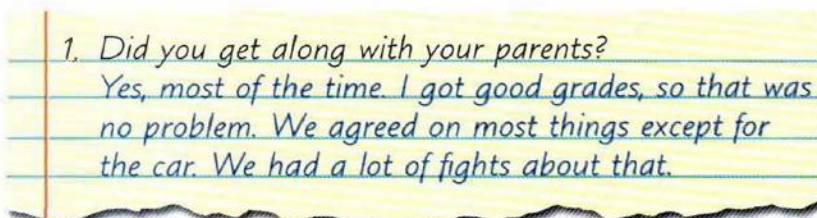 1. Did you get along with your parents?
Yes, most of the time. I got good grades, so that was
no problem. We agreed on most things except for
the car. We had a lot of fights about that.